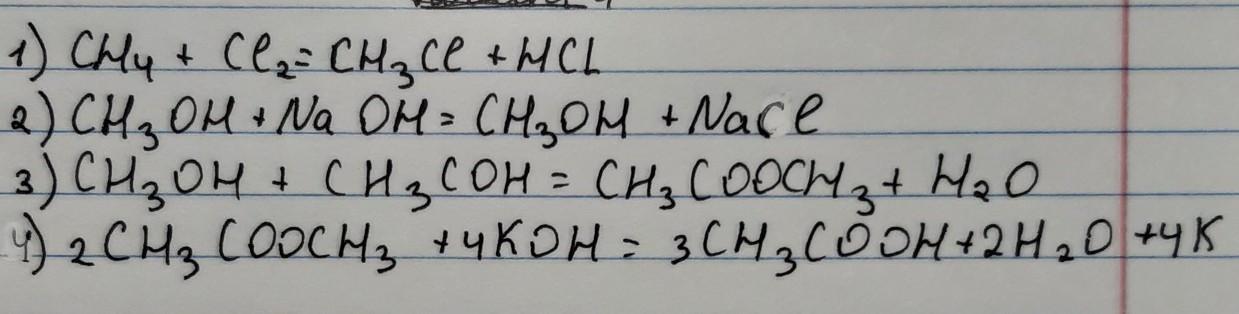 1) CH₄ + Cl₂ = CH₃Cl + HCL
2) CH₃OH + NaOH = CH₃OH + NaCl
3) CH₃OH + CH₃COH = CH₃COOCH₃ + H₂O
4) 2CH₃COOCH₃ + 4KOH = 3CH₃COOH + 2H₂O + 4K